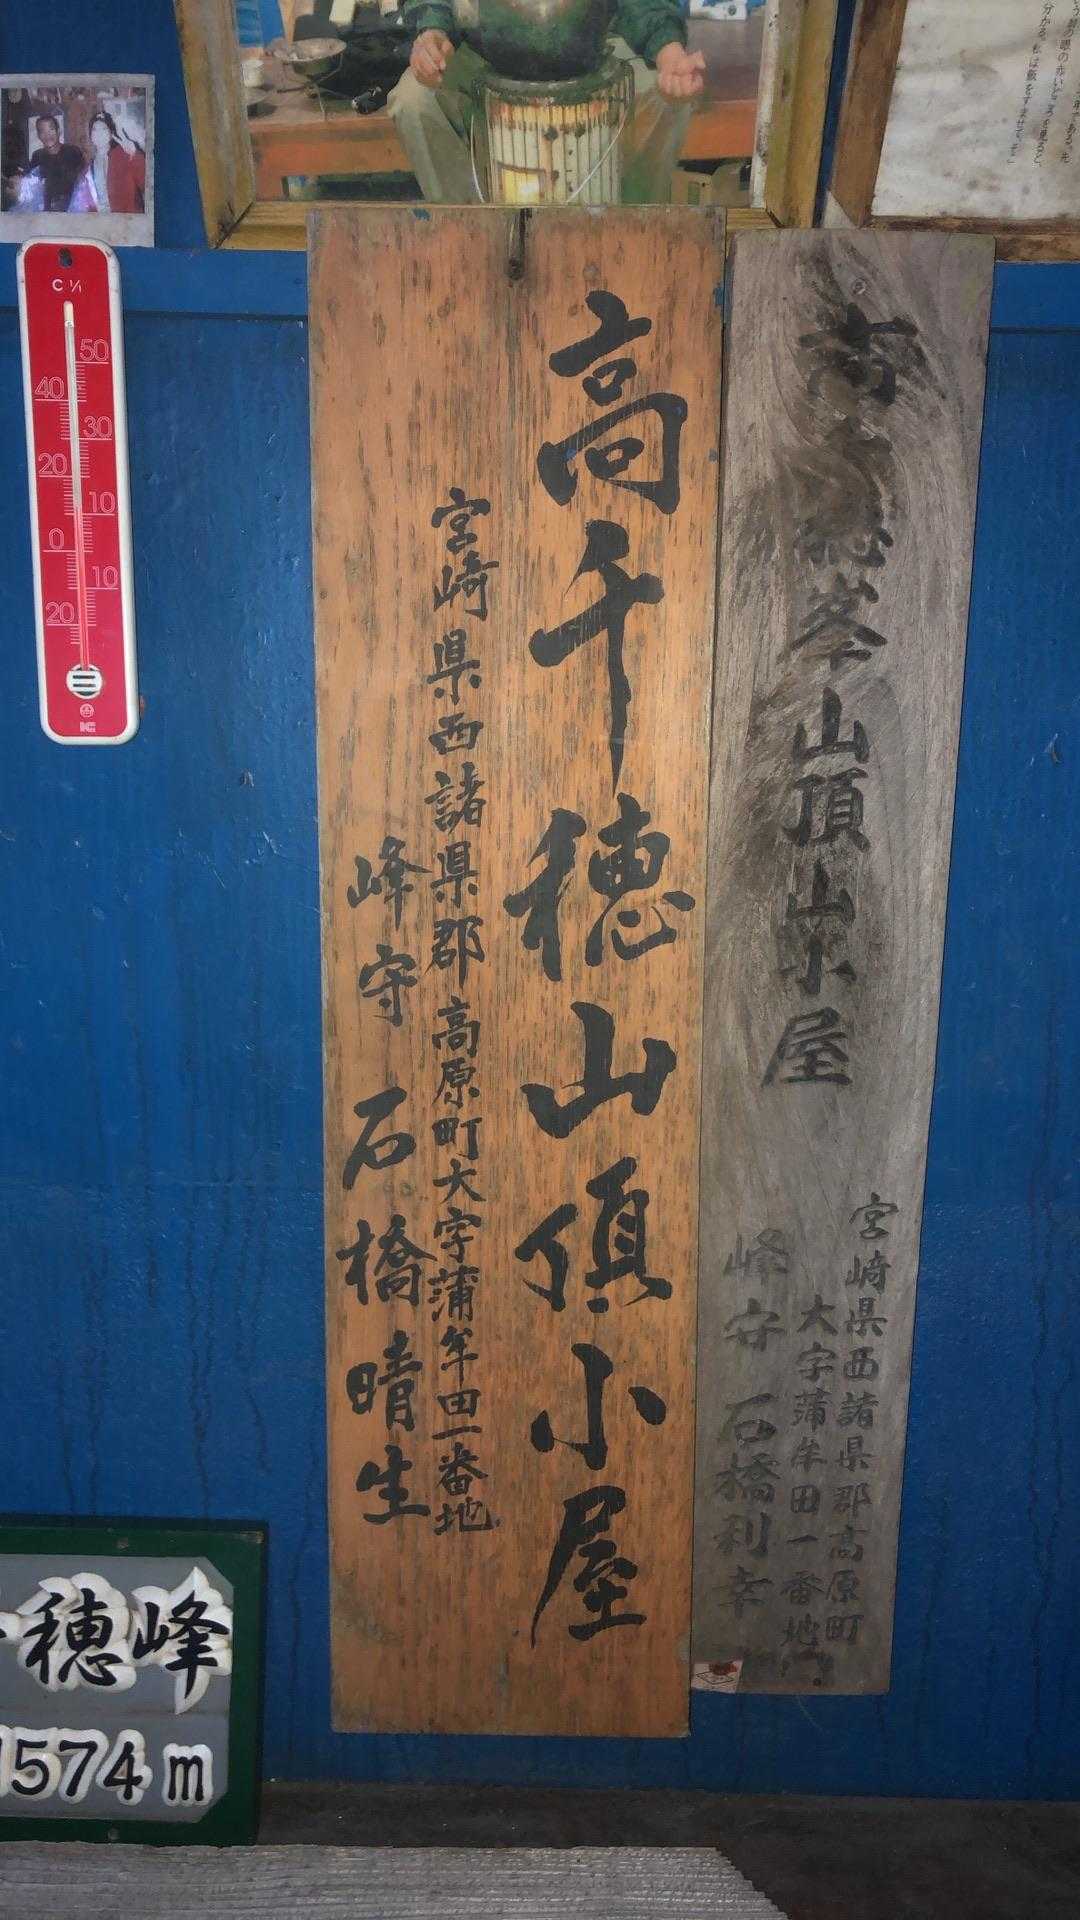 C 1/1
50
40
30
20
10
0
10
20
高千穂山頂小屋
宮崎県西諸県郡高原町大字蒲牟田一番地
峰守 石橋晴生
高千穂峯山頂小屋
宮崎県西諸県郡高原町
大字蒲牟田一番地
峰守 石橋利幸
穂峰
1574m